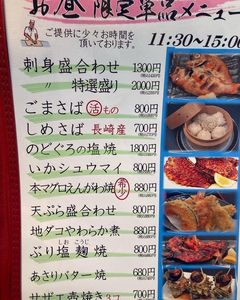 お昼限定単品メニュー
ご提供に少々お時間を
頂いております。
11:30~15:00
刺身盛合わせ 1300円
〃 特選盛り 2000円
ごまさば 活もの 800円
しめさば 長崎産 700円
のどぐろの塩焼 1800円
いかシュウマイ 800円
本マグロえんがわ焼 希少 880円
天ぷら盛合わせ 800円
地ダコやわらか煮 880円
ぶり塩麹焼 800円
しおこうじ
あさりバター焼 680円
サザエ壺焼き3コ 700円